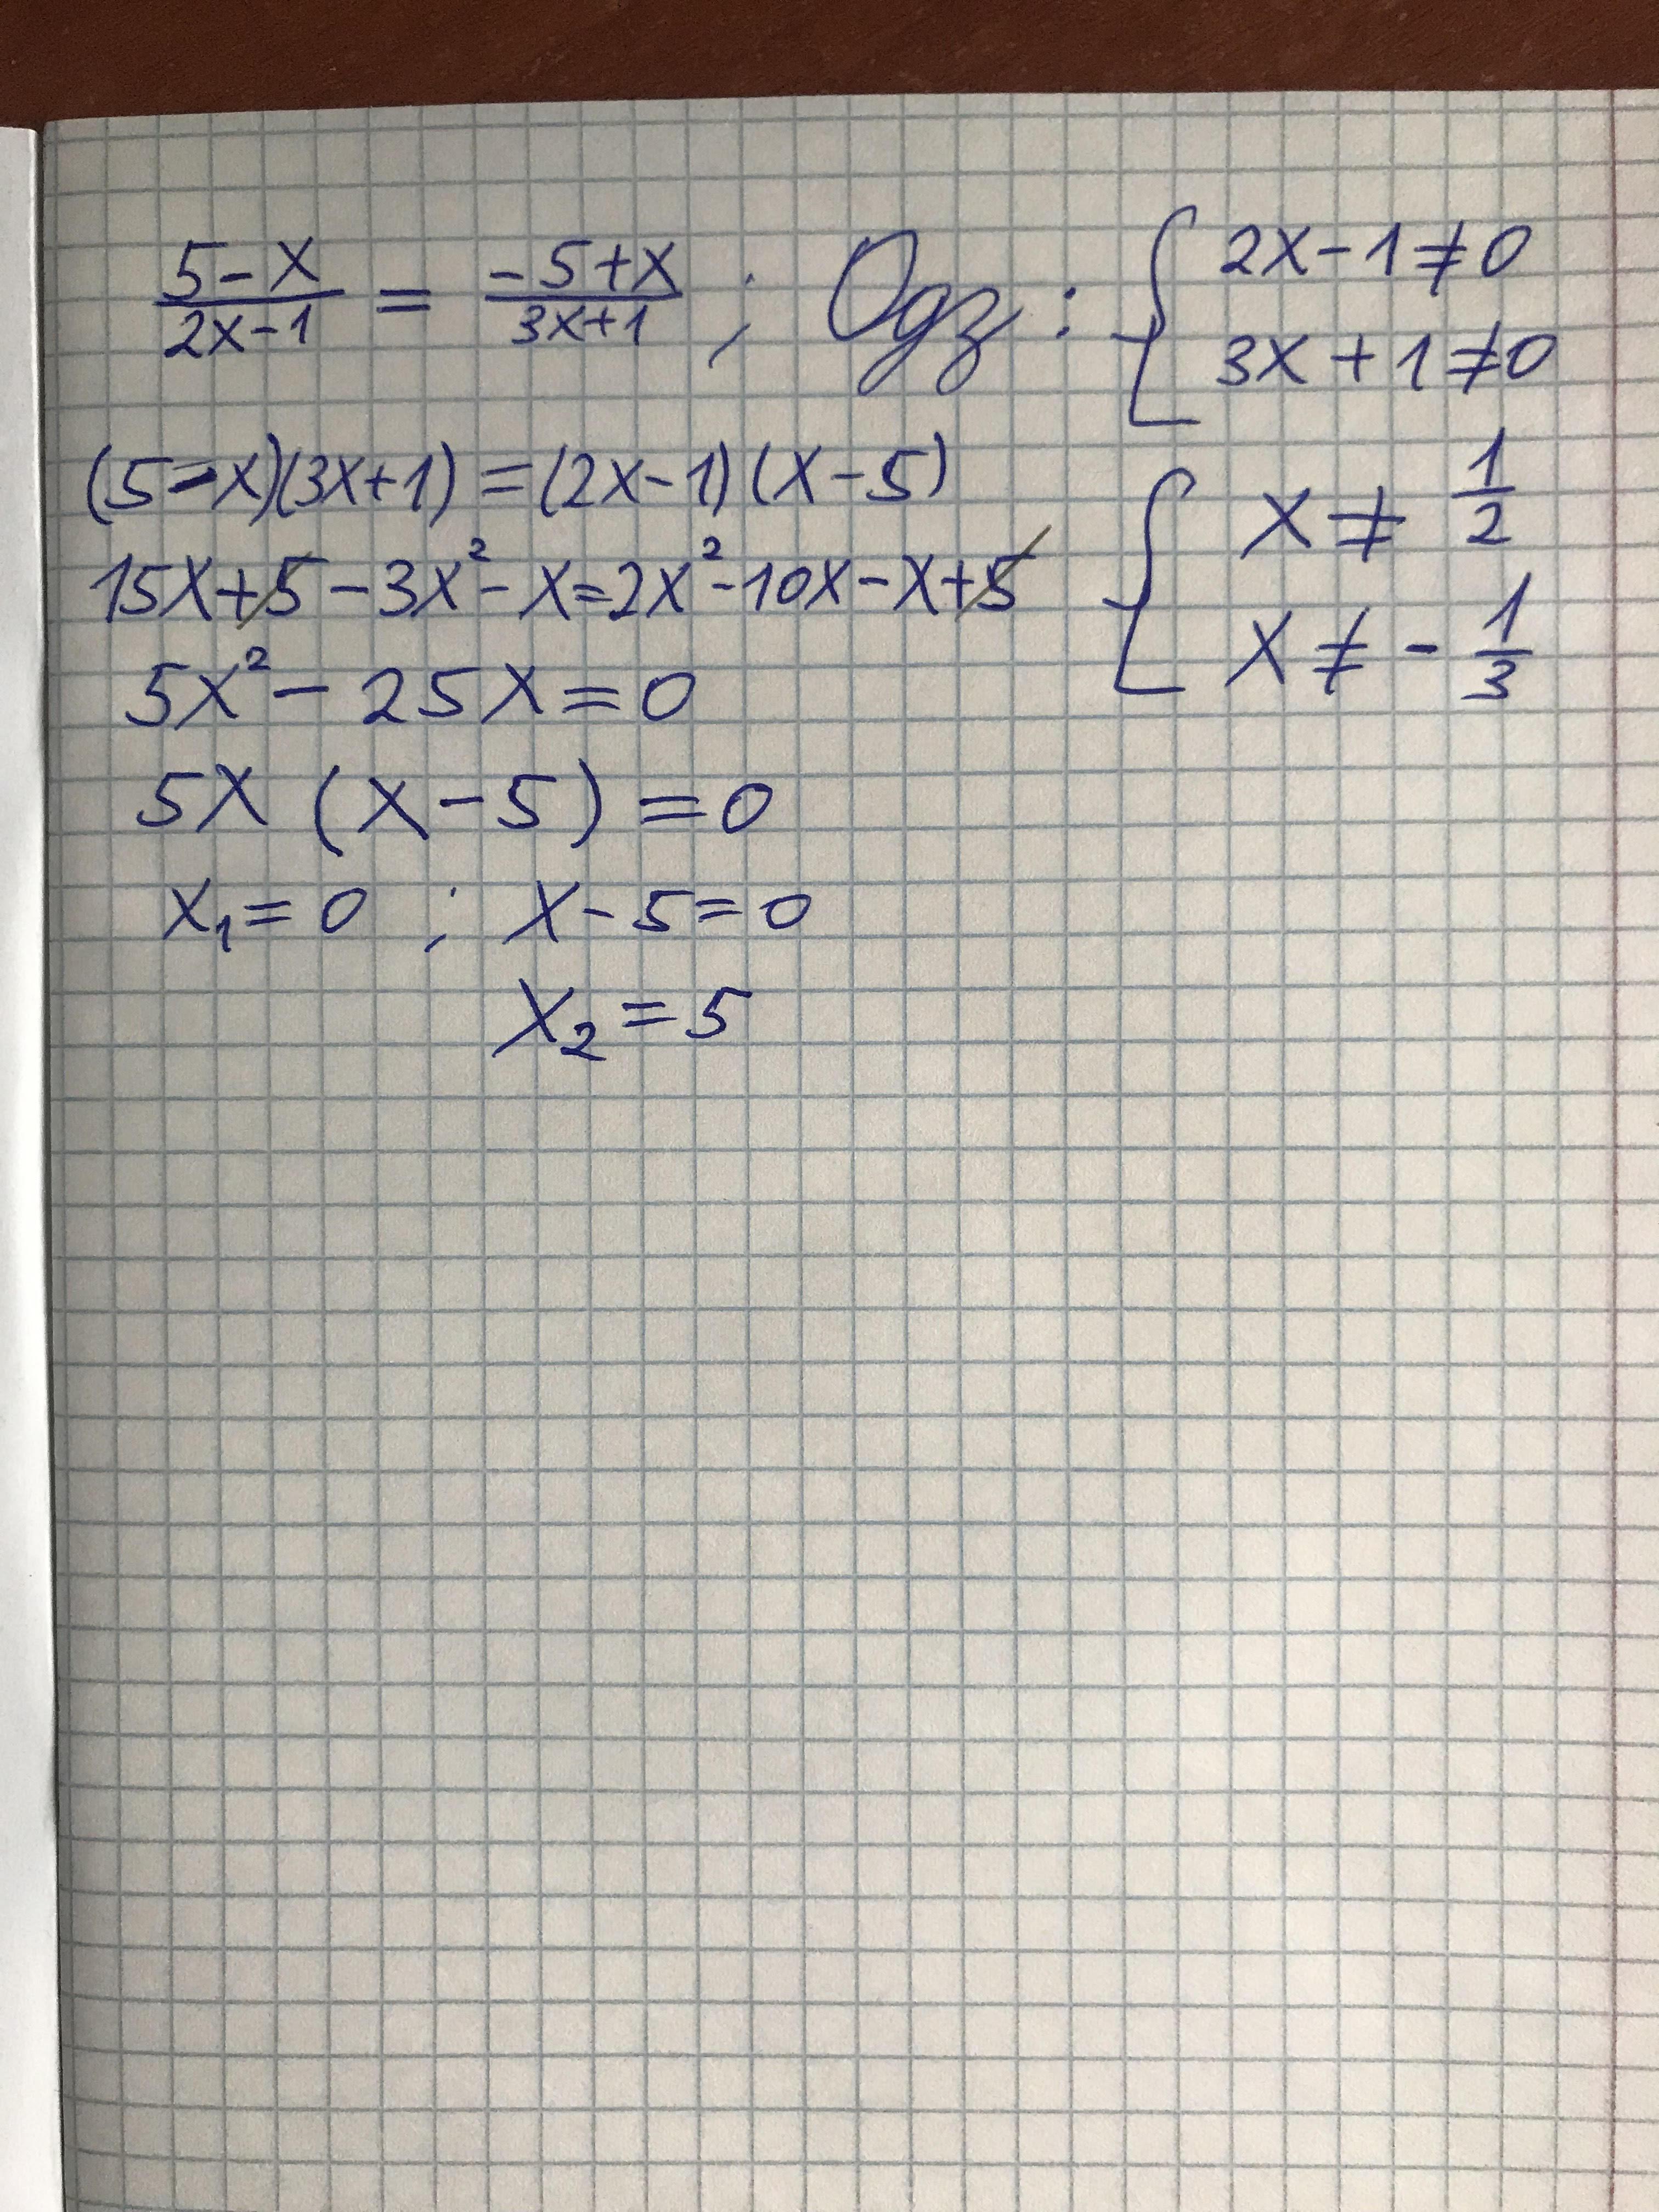 (5-x)/(2x-1) = (-5+x)/(3x+1) ; Одз : { 2x-1≠0
3x+1≠0
(5-x)(3x+1)=(2x-1)(x-5)
15x+5-3x²-x=2x²-10x-x+5
5x²-25x=0
5x(x-5)=0
x₁=0 ; x-5=0
x₂=5
{ x≠1/2
x≠-1/3